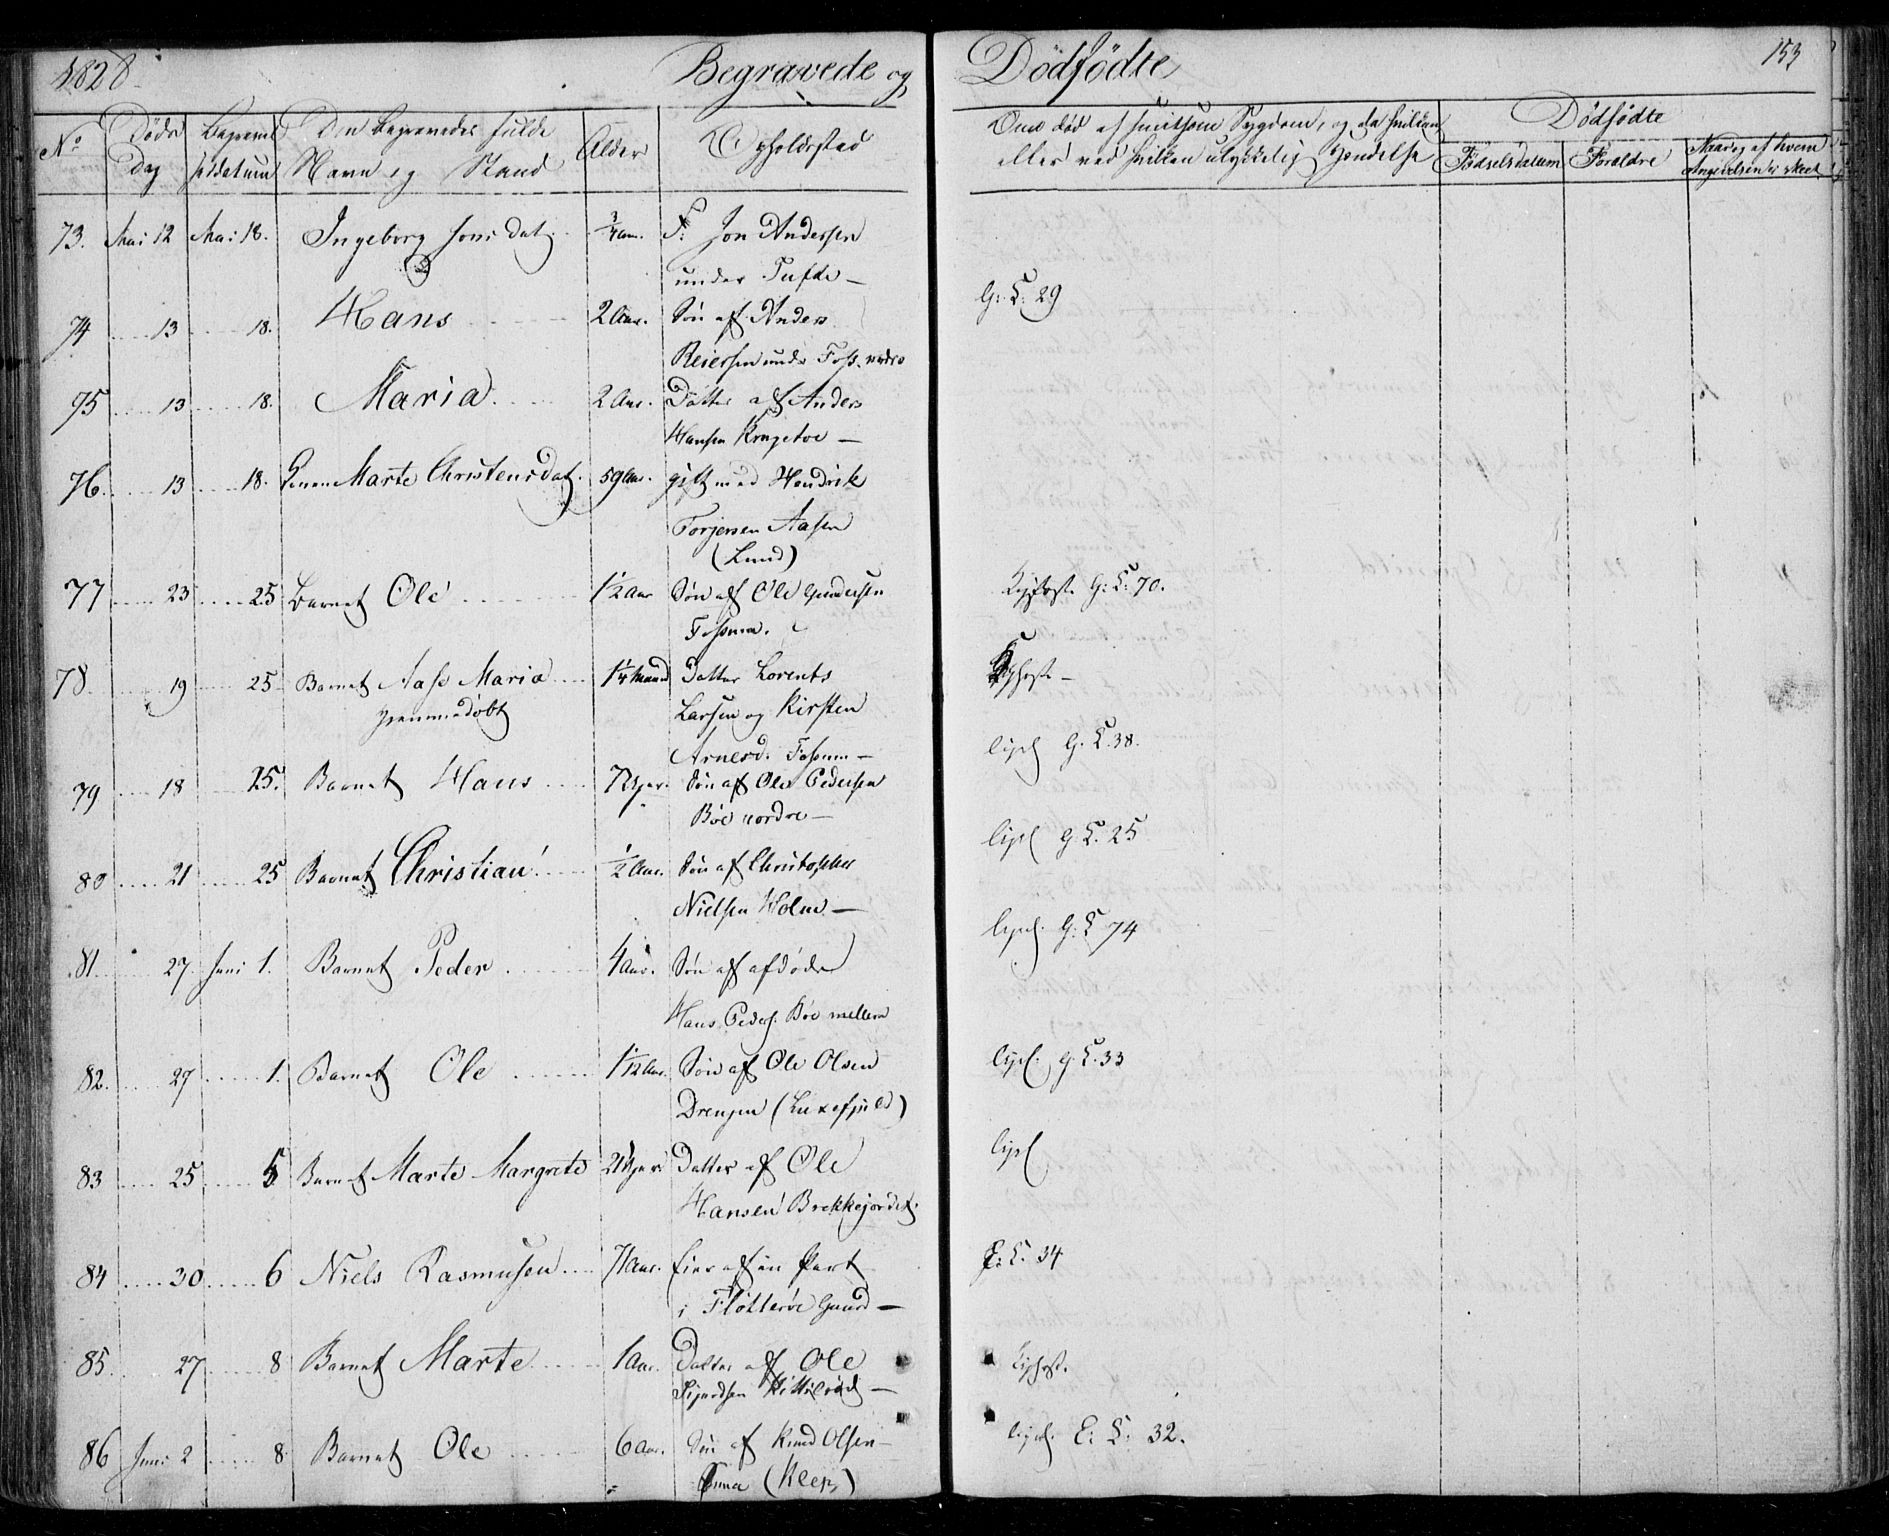 1828.
Begravede og Dødfødte
153
No
Døds Dag
Begravelsesdatum
Den Begravedes fulde Navn og Stand
Alder
Opholdssted
Om død af smitsom Sygdom, og da hvilken
eller ved hvilken ulykkelig Hendelse
Dødfødte
Fødselsdatum
Forældre
Naar og af hvem
Angivelsen er skeet
73. Mai 12 Mai 18. Ingeborg Jonsdat. 3/4 Aar. F: Jon Andersen
under Tufte —
74 13 18. Hans 2 Aar. Søn af Anders G: L: 29
Reiersen under Foss nedre
75 13 18. Maria 2 Aar. Datter af Anders
Hansen
76. 13 18. Konen Marte Christensdat. 59 Aar. gift med Hendrik
Torjersen Aasen
(Lund)
77 23 25 Barnet Ole 1 1/2 Aar Søn af Ole Gundersen Kighost. G: L: 70.
Fossum.
78 19 25 Barnet Aase Maria 1 1/4 Maaned Datter Lorents Kighoste —
hjemmedøbt Larsen og Kirsten
Arnesd. Fossum —
79 18 25. Barnet Hans 7 Uger. Søn af Ole Pedersen ligel G. L. 38.
Bøe nordre —
80 21 25 Barnet Christian 1/2 Aar. Søn af Christopher ligel G. L. 25
Nielsen Holm —
81. 27. Juni 1. Barnet Peder 4 Aar. Søn af afdøde ligel. G: L 74
Hans Peders. Bøe mellem
82. 27 1. Barnet Ole 1 1/12 Aar. Søn af Ole Olsen ligel. G. L. 33
Drengen (Luxefjeld)
83 25 5 Barnet Marte Margrete 21 Uger Datter af Ole ligel
Hansen Brekkejordet.
84 30 6 Niels Rasmusen 71 Aar. Eier af en Part E: L. 34
i Fløtterøe Gaard —
85 27 8 Barnet Marte 1 Aar. Datter af Ole Kighost.
Sjurdsen Kittilrød —
86 Juni 2 8 Barnet Ole 6 Aar. Søn af Knud Olsen ligel. E: L: 32.
(Klep)